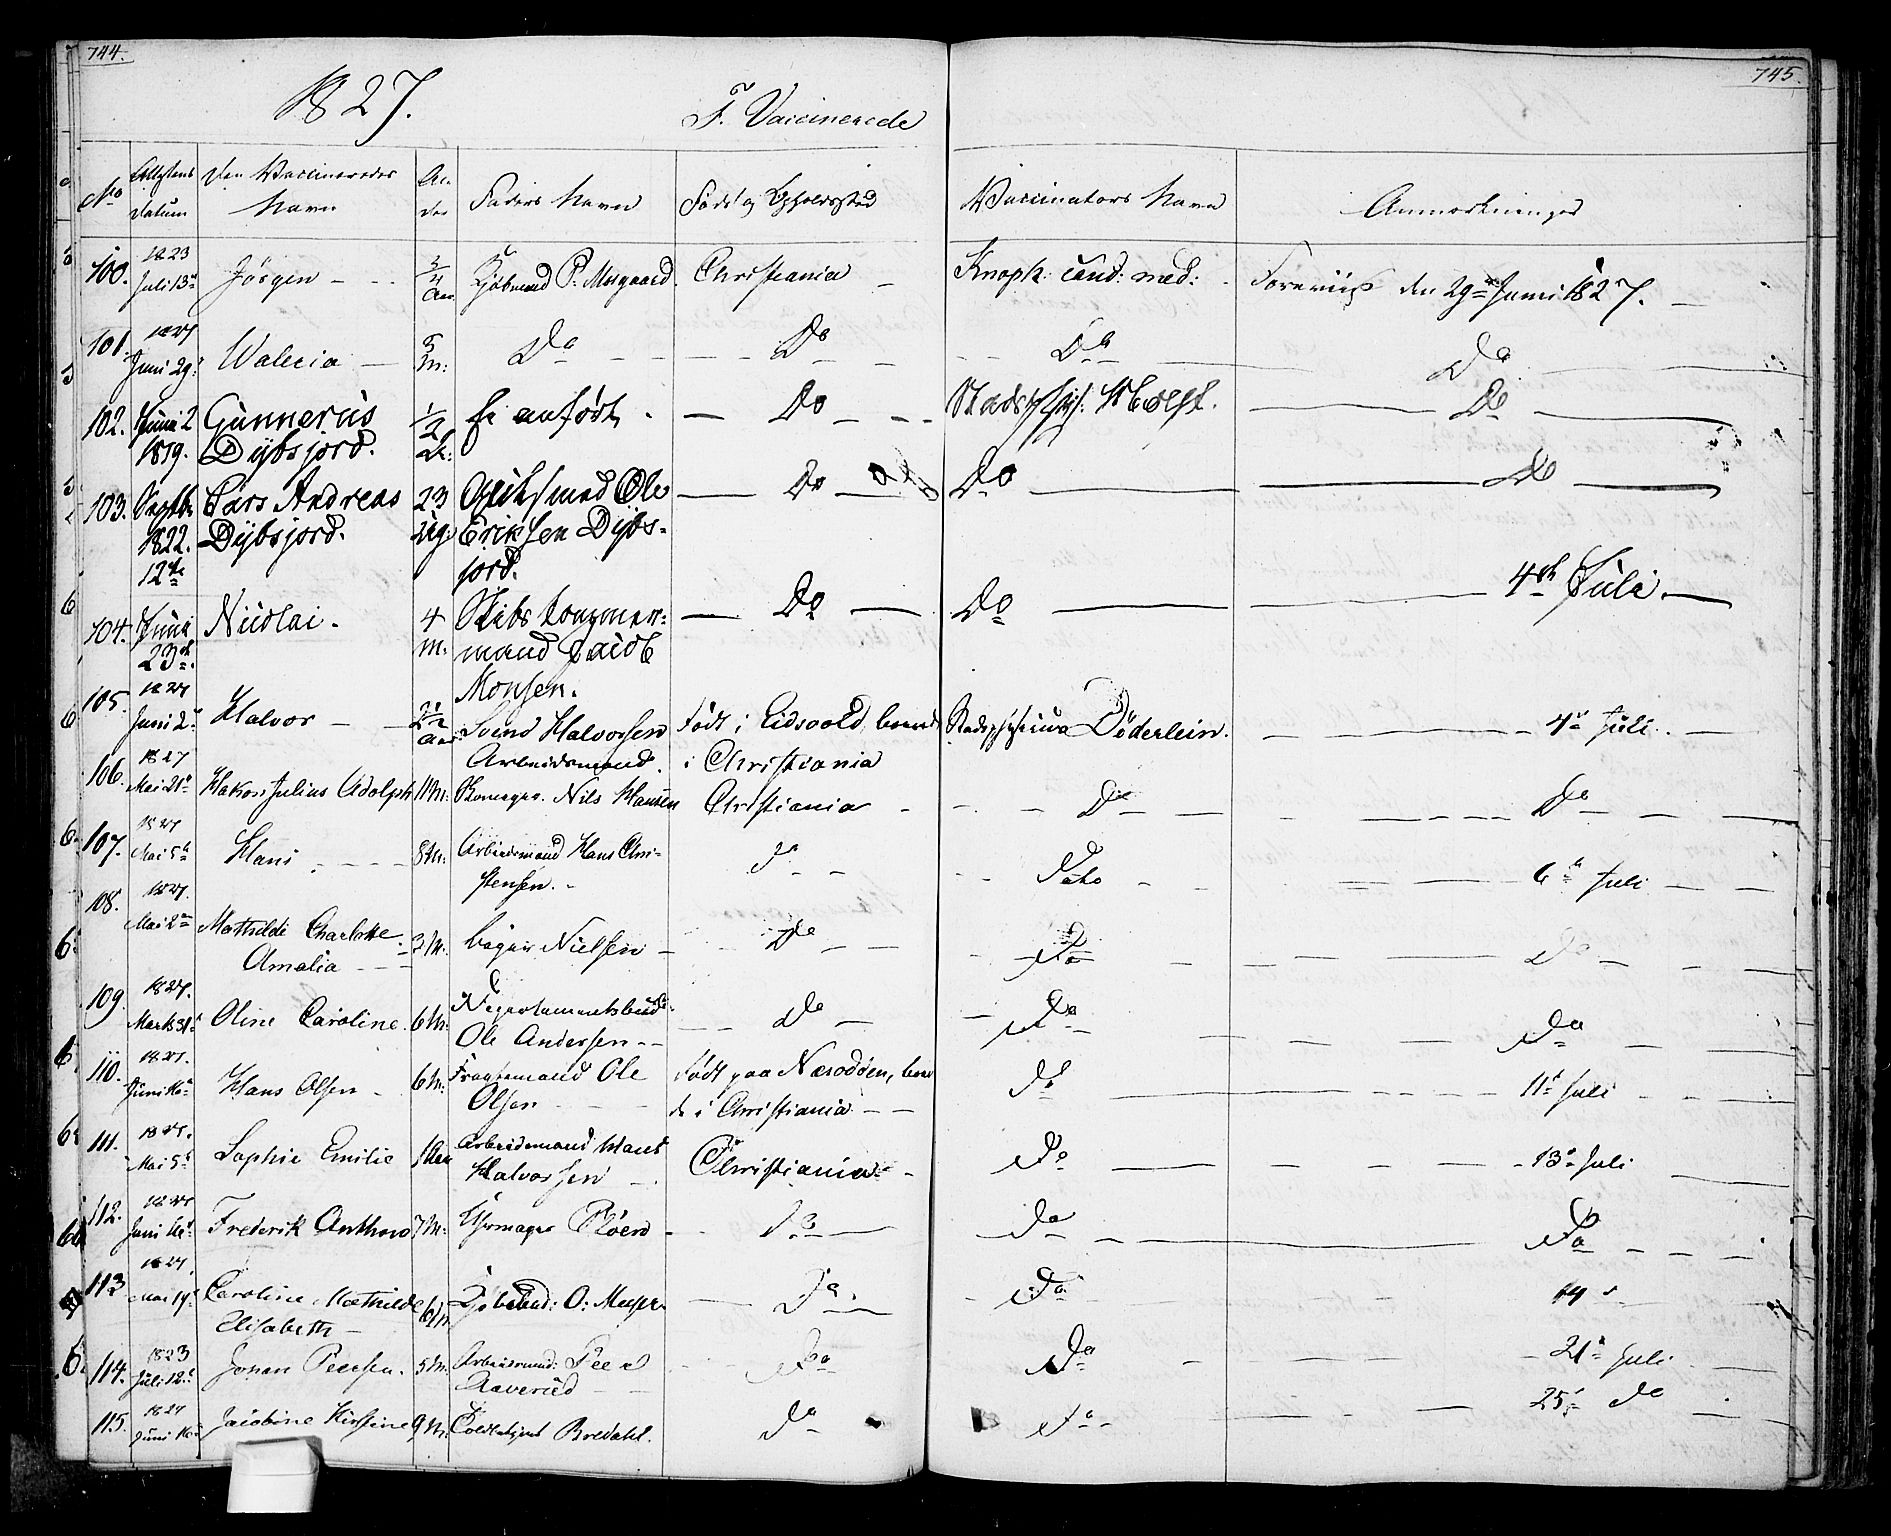 744.
745.
1827.
F. Vaccinerede
No
Attestens Datum
Den Vaccineredes Navn
Al-der
Faders Navn
Føde og Opholdssted
Vaccinators Navn
Anmærkninger
100. 1823 Juli 13de Jørgen - - 3/4 Aar Kjøbmand P. Morgaard. Christiania - Knoph: cand: med: Foreviist den 29de Juni 1827. -
101. 1827 Juni 29de Walecia - 5 M: Do - - Do - - Do - Do
102. Junii 2 1819. Gunnerus Dybsjord. 1/2 Ei anført. - Do - Stadsphys: Holst. - Do -
103. Septb. 1822. 12te Lars Andreas Dybsjord. 23 Ug: Ole Eriksen Dybs-
jord. - Do - Do - Do -
104. Junii 23de. Nicolai. 4 m. Skibstømmer-
mand Jacob
Monsen. - Do - Do - 4de Juli. -
105. 1827 Juni 2de Halvor - 2 1/2 Aar Svend Halvorsen
Arbeidsmand. Født i Eidsvold, boende
i Christiania Stadsphysicus Döderlein. - 4de Juli. -
106. 1827 Mai 21de Hakon Julius Adolph 11 M: Skomager. Nils Hansen Christiania - Do - Do -
107. 1827 Mai 5te Hans - 8 M: Arbeidsmand Hans Chri-
stensen. - Do - Dato - 6te Juli -
108. 1827. Mai 2den Mathilde Charlotte
Amalia - 3 M. Bager Nielsen - Do - Do - Do -
109. 1827. Marts 31te Oline Caroline. 6 M: Departementsbud
Ole Andersen - Do - Do - Do
110. 1827. Juni 16de Hans Olsen - 6 M: Fragtemand Ole
Olsen - Født paa Næsodden, boen
de i Christiania - Do - 11te Juli -
111. 1827. Mai 5te Sophie Emilie 1 Aar Arbeidsmand Hans
Halvorsen - Christiania - Do - 13de Juli
112. 1827 Juni 16de Frederik Anthon 7 M: Uhrmager Pløen - Do - Do - Do -
113 1827. Mai 19de Caroline Mathilde
Elisabeth - Kjøbmd: O: - Do - Do - 14de -
114. 1823 Juli 12te Johan Peersen. 5 M: Arbeidsmd: Peer
Aaverud - Do - Do - 21de Juli -
115. 1827 Juni 16de Jacobine Kirstine 9 M: Toldbetjent Bredahl. Do - Do - 25de do